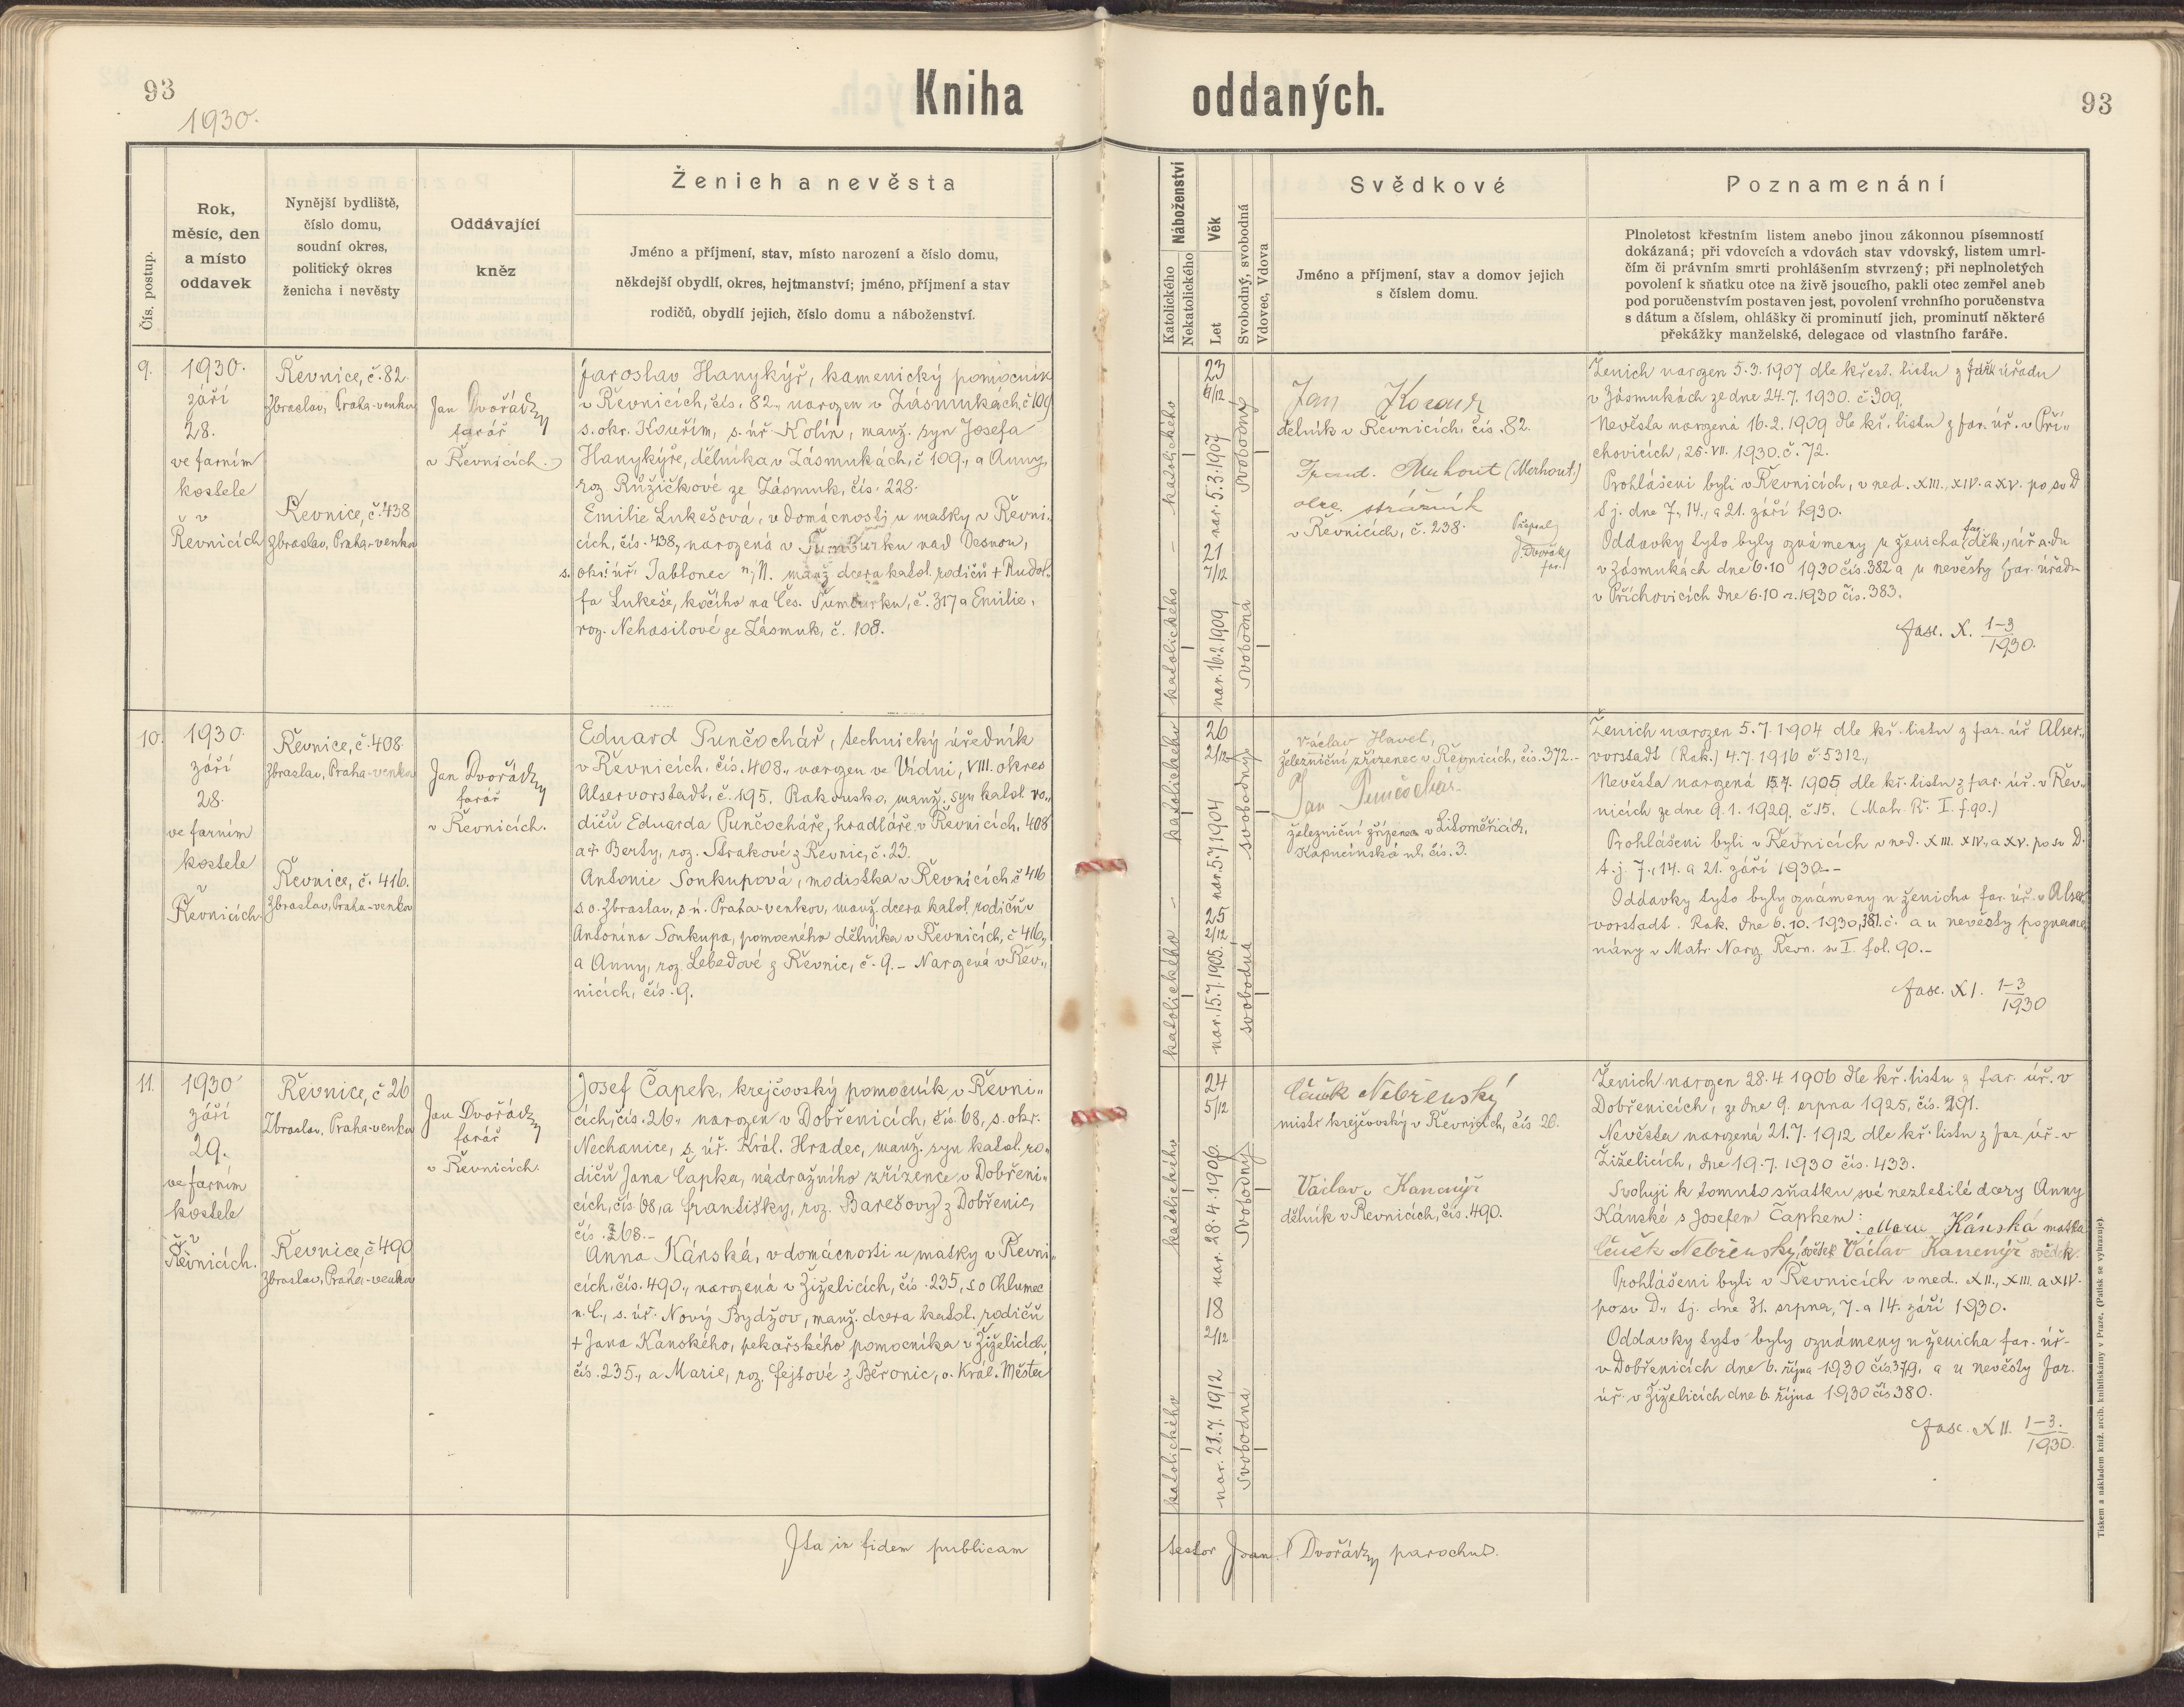 93
1930.
Kniha oddaných.
93
Čís. postup.
Rok,
měsíc, den
a místo
oddavek
Nynější bydliště,
číslo domu,
soudní okres,
politický okres
ženicha i nevěsty
Oddávající
kněz
Ženich a nevěsta
Jméno a příjmení, stav, místo narození a číslo domu,
někdejší obydlí, okres, hejtmanství; jméno, příjmení a stav
rodičů, obydlí jejich, číslo domu a náboženství.
Náboženství
Katolického
Nekatolického
Věk
Let
Svobodný, svobodná
Vdovec, Vdova
Svědkové
Jméno a příjmení, stav a domov jejich
s číslem domu.
Poznamenání
Plnoletost křestním listem anebo jinou zákonnou písemností
dokázaná; při vdovcích a vdovách stav vdovský, listem umrl-
čím či právním smrti prohlášením stvrzený; při neplnoletých
povolení k sňatku otce na živě jsoucího, pakli otec zemřel aneb
pod poručenstvím postaven jest, povolení vrchního poručenstva
s dátum a číslem, ohlášky či prominutí jich, prominutí některé
překážky manželské, delegace od vlastního faráře.
9.
1930.
září
28.
ve farním
kostele
v
Řevnicích
Řevnice, č. 82.
Zbraslav, Praha-venkov
Řevnice, č. 438
Zbraslav, Praha-venkov
Jan Dvořáčky
farář
v Řevnicích.
Jaroslav Hanykýř, kamenický pomocník
v Řevnicích, čís. 82., narozen v Zásmukách, č 109
s. okr. Kouřim, s. úř Kolín, manž. syn Josefa
Hanykýře, dělníka v Zásmukách, č 109., a Anny,
roz Růžičkové ze Zásmuk, čís. 228.
Emilie Lukešová, v domácnosti u matky v Řevni-
cích, čís. 438., narozená v Šumburku nad Desnou,
s. okr. úř. Jablonec n/N. manž dcera katol. rodičů + Rudol-
fa Lukeše, kočího na Čes. Šumburku, č. 317 a Emilie,
roz. Nehasilové ze Zásmuk, č. 108.
katolického
katolického
23
6/12
nar. 5.3.1907
21
7/12
nar. 16.2.1909
svobodný
svobodná
Jan Kocour
dělník v Řevnicích, čís. 82.
(Merhout)
obec. strážník
v Řevnicích, č. 238.
Dvořáčky
far.
Ženich narozen 5.3.1907 dle křest. listu z far. úřadu
v Zásmukách ze dne 24.7.1930. č. 309.
Nevěsta narozená 16.2.1909 dle kř. listu z far. úř. v Při-
chovicích, 25. VII. 1930. č. 72.
Prohlášeni byli v Řevnicích, v ned. XIII., XIV. a XV. po sv D
t j. dne 7., 14., a 21. září 1930.
Oddavky tyto byly oznámeny u ženicha far. děk. úřadu
v Zásmukách dne 6.10 1930 čís. 382 a u nevěsty far. úřadu
v Příchovicích dne 6.10 r. 1930 čís. 383.
fasc. X. 1-3
1930.
10.
1930.
září
28.
ve farním
kostele
v
Řevnicích
Řevnice, č. 408.
Zbraslav, Praha-venkov
Řevnice, č. 416.
Zbraslav, Praha-venkov
Jan Dvořáčky
farář
v Řevnicích.
Eduard Punčochář, technický úředník
v Řevnicích, čís. 408., narozen ve Vídni, VIII. okres
Alservorstadt, č. 195. Rakousko, manž. syn katol. ro-
dičů Eduarda Punčocháře, hradláře v Řevnicích, 408
a + Berty, roz. Strakové z Řevnic, č. 23.
Antonie Soukupová, modistka v Řevnicích č 416
s. o. Zbraslav, p. ú. Praha-venkov, manž. dcera katol. rodičů
Antonína Soukupa, pomocného dělníka v Řevnicích, č 416,
a Anny, roz. Lebedové z Řevnic, č. 9. – Narozená v Řev-
nicích, čís. 9.
katolického
katolického
26
2/12
nar. 5.7.1904
25
2/12
nar. 15.7.1905.
svobodný
svobodná
Václav Havel,
železniční zřízenec v Řevnicích, čís. 372.
Jan Punčochář
železniční zřízenec v Litoměřicích,
Kapucínská ul. čís. 3.
Ženich narozen 5.7.1904 dle kř. listu z far. úř Alser-
vorstadt (Rak.) 4.7.1916 č. 5312,
Nevěsta narozená 15.7. 1905 dle kř. listu z far. úř. v Řev-
nicích ze dne 9.1.1929. č. 15. (Matr. Ř. I. f. 90.)
Prohlášeni byli v Řevnicích v ned. XIII. XIV., a XV. po sv D.
t. j. 7., 14. a 21. září 1930.–
Oddavky tyto byly oznámeny u ženicha far. úř. v Alser-
vorstadt. Rak. dne 6.10.1930, 381. č. a u nevěsty pozname-
nány v Matr. Naroz Řevn. sv I. fol. 90.–
fasc. XI. 1-3
1930
11.
1930
září
29.
ve farním
kostele
v
Řevnicích.
Řevnice, č 26
Zbraslav, Praha-venkov
Řevnice, č 490
Zbraslav, Praha-venkov
Jan Dvořáčky
farář
v Řevnicích.
Josef Čapek, krejčovský pomocník v Řevni-
cích, čís. 26., narozen v Dobřenicích, čís. 68, s. okr.
Nechanice, s. úř. Král. Hradec, manž. syn katol. ro-
dičů Jana Čapka, nádražního zřízence v Dobřeni-
cích, čís. 68, a Františky, roz. Barešovy z Dobřenic,
čís. 268.–
Anna Kánská, v domácnosti u matky v Řevni-
cích, čís. 490., narozená v Žiželicích, čís. 235, s o Chlumec
n. C., s. úř. Nový Bydžov, manž. dcera katol. rodičů
+ Jana Kánského, pekařského pomocníka v Žiželicích,
čís. 235., a Marie, roz. Fejtové z Běronic, o. Král. Městec
katolického
katolického
24
5/12
nar. 28.4.1906
18
2/12
nar. 21.7.1912
svobodný
svobodna
Čeněk Nebřenský
mistr krejčovský v Řevnicích, čís 26.
Václav Kamenýř
dělník v Řevnicích, čís. 490.
Ženich narozen 28.4 1906 dle kř. listu z far. úř. v
Dobřenicích, ze dne 9. srpna 1925, čís. 291.
Nevěsta narozená 21.7. 1912 dle kř. listu z far. úř. v
Žiželicích, dne 19.7.1930 čís. 433.
Svoluji k tomuto sňatku své nezletilé dcery Anny
Kánské s Josefem Čapkem:
Marie Kánská matka
Čeněk Nebřenský, svědek Václav Kamenýř svědek.
Prohlášeni byli v Řevnicích v ned. XII., XIII. a XIV.
po sv D., tj. dne 31. srpna, 7. a 14. září 1930.
Oddavky tyto byly oznámeny u ženicha far. úř.
v Dobřenicích dne 6. října 1930 čís 379, a u nevěsty far.
úř. v Žiželicích dne 6. října 1930 čís 380.
fasc. XII. 1-3.
1930.
Ita in fidem publicam testor Joan. Dvořáčky parochus.
Tiskem a nákladem kníž. arcib. knihtiskárny v Praze. (Patisk se vyhrazuje).